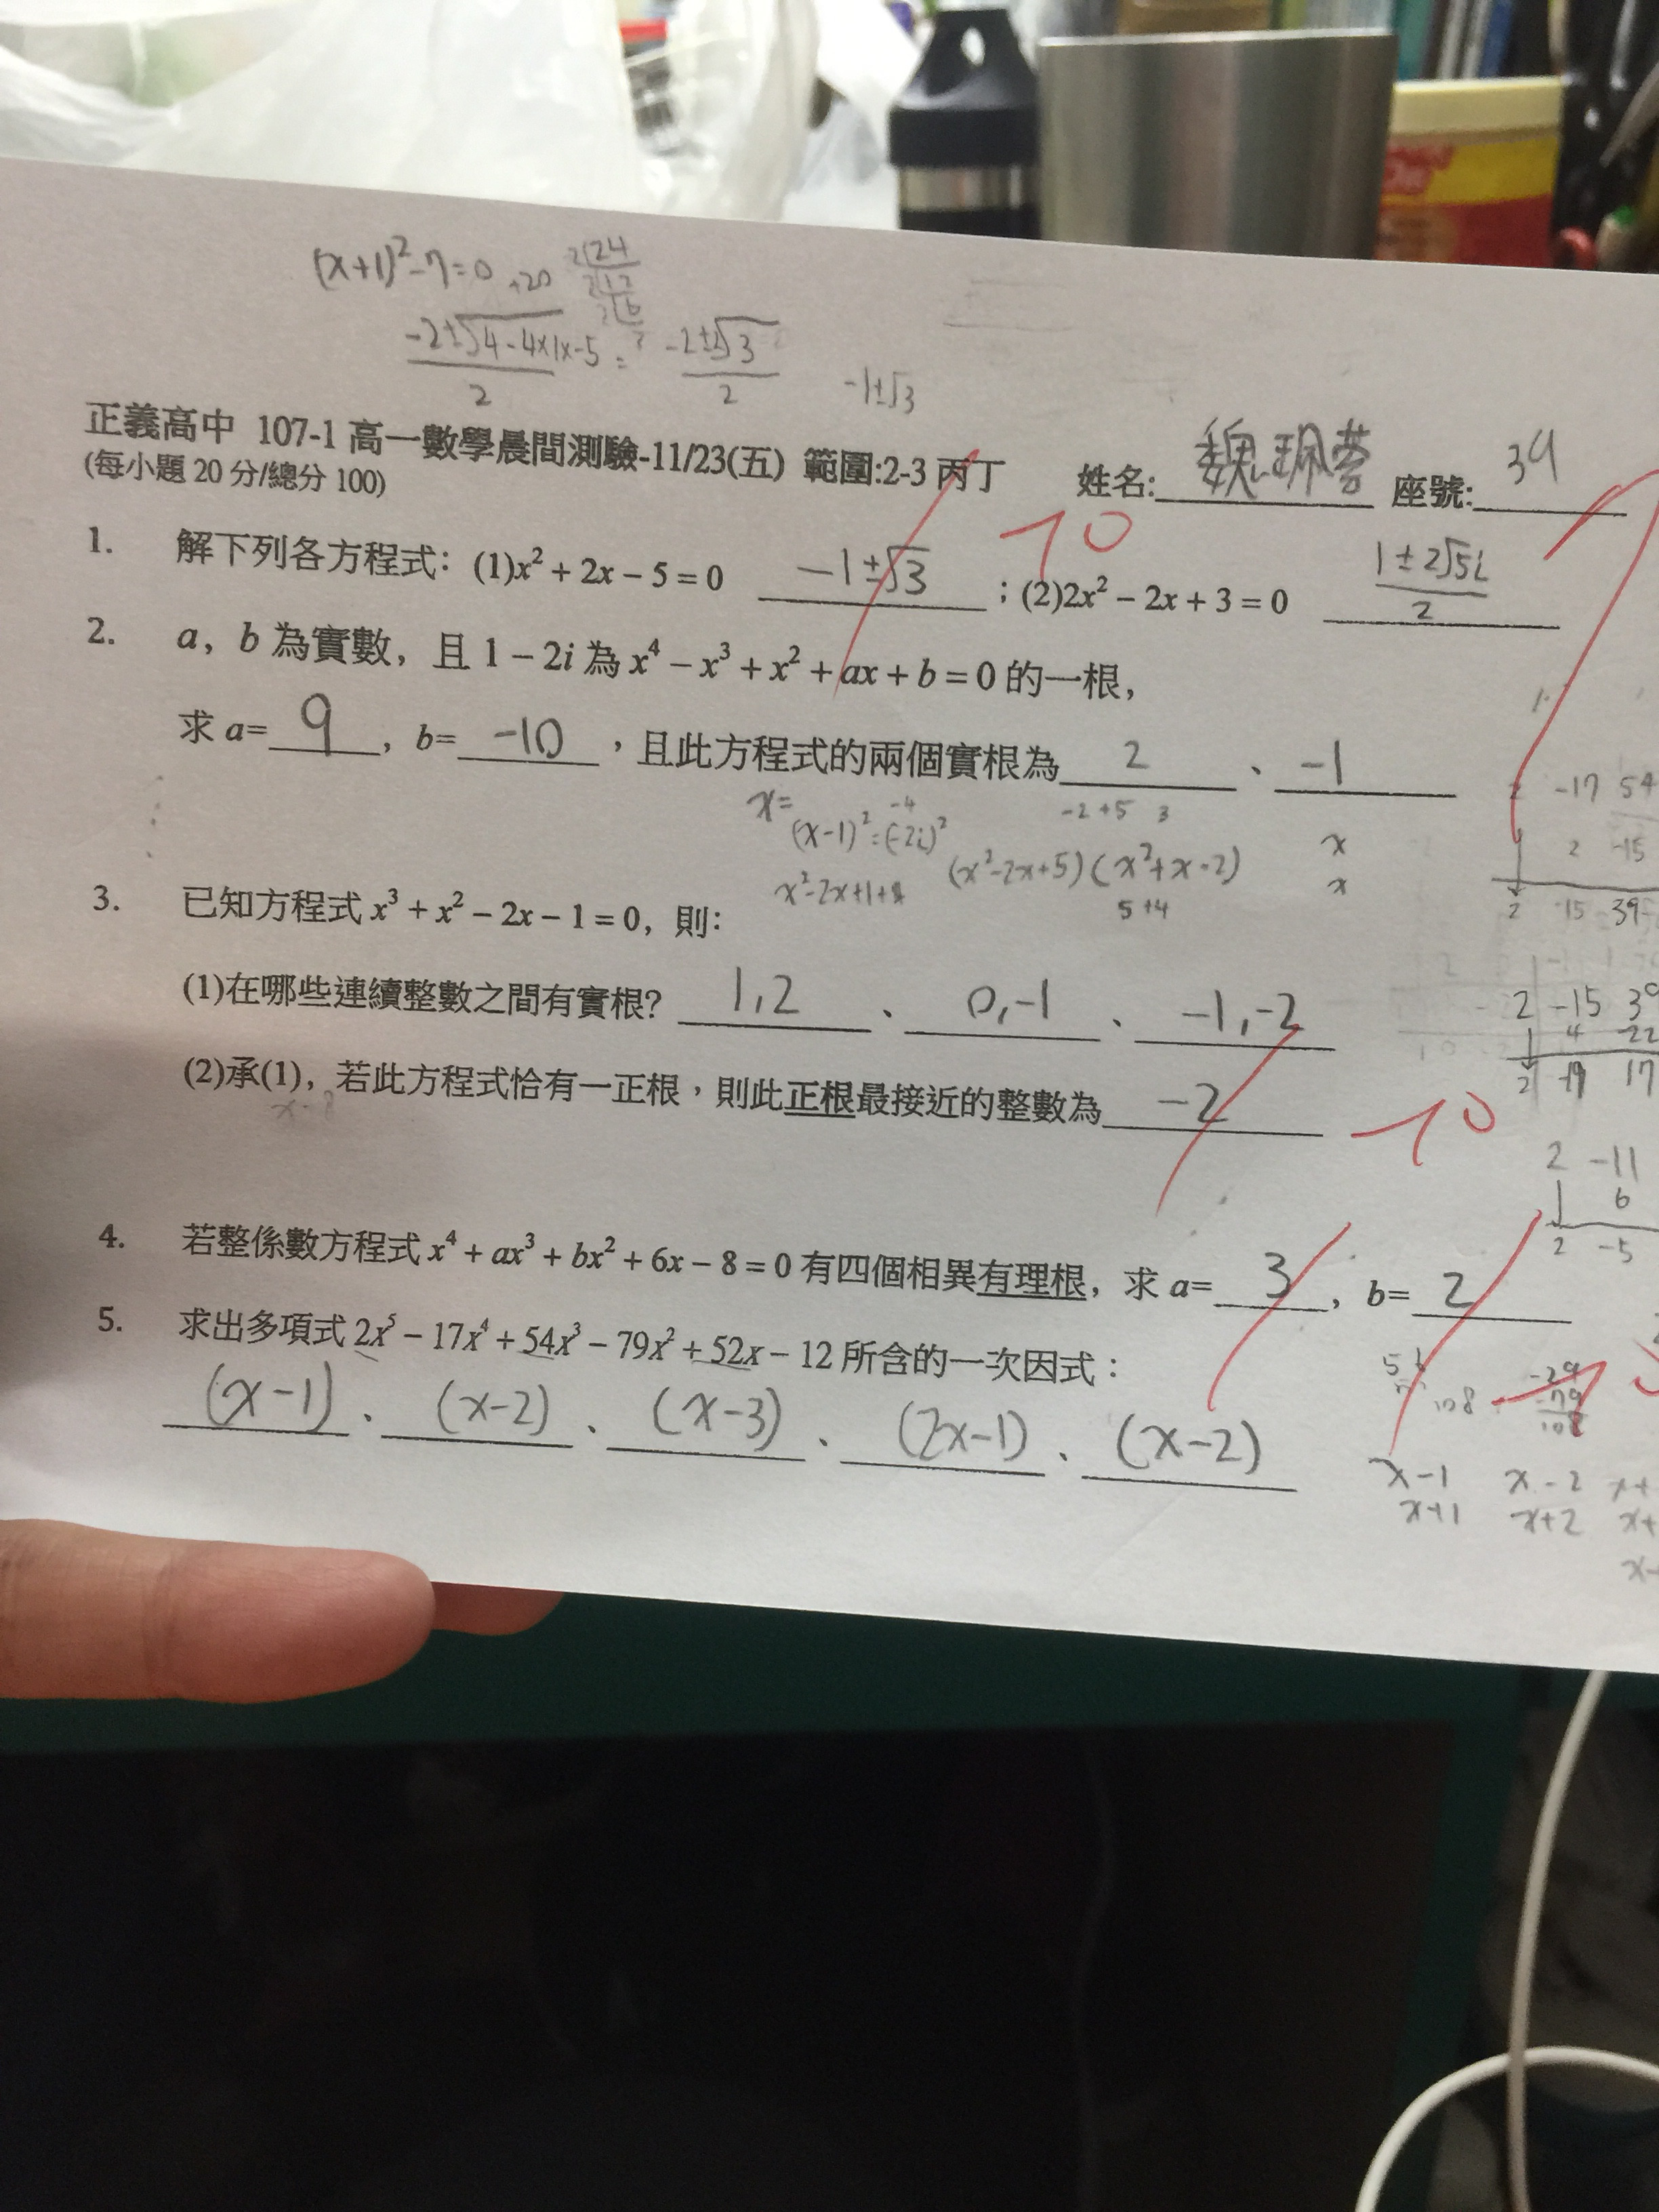 (x+1)²-7=0 +20 2|24
2|12
2|6
-2±√4-4×1×-5 / 2 = -2±2√3 / 2 -1±√3
正義高中 107-1 高一數學晨間測驗-11/23(五) 範圍:2-3 丙丁 姓名: 魏珮蓉 座號: 39
(每小題 20 分/總分 100)
-10
1. 解下列各方程式：(1)x² + 2x − 5 = 0 -1±√3 ；(2)2x² − 2x + 3 = 0 1±2√5i / 2
2. a，b 為實數，且 1 − 2i 為 x⁴ − x³ + x² + ax + b = 0 的一根，
求 a= 9 ，b= -10 ，且此方程式的兩個實根為 2 、 -1
x= -4 -2+5 3
(x-1)²=(-2i)² (x²-2x+5)(x²+x-2) x
x²-2x+1+4 5+4 x
-17 54
2 -15
2 -15 39
3. 已知方程式 x³ + x² − 2x − 1 = 0，則：
(1)在哪些連續整數之間有實根? 1,2 、 0,-1 、 -1,-2
2 -15 39
4 -22
2 -19 17
(2)承(1)，若此方程式恰有一正根，則此正根最接近的整數為 -2
-10
x-8
2 -11
6
2 -5
4. 若整係數方程式 x⁴ + ax³ + bx² + 6x − 8 = 0 有四個相異有理根，求 a= 3 ，b= 2
5. 求出多項式 2x⁵ − 17x⁴ + 54x³ − 79x² + 52x − 12 所含的一次因式：
(x-1) 、 (x-2) 、 (x-3) 、 (2x-1) 、 (x-2)
108 -29
79
108
x-1 x-2
x+1 x+2